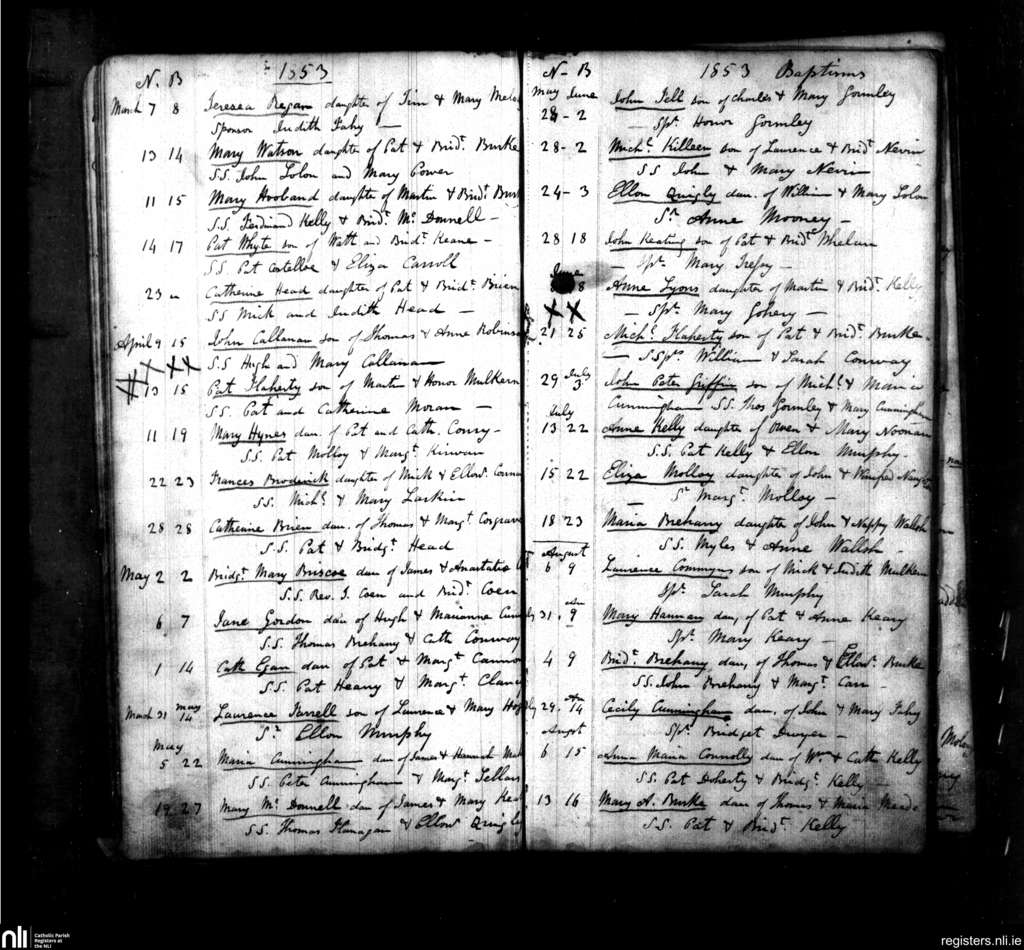 N. B 1853
March 7 8 Teresea Regan daughter of Tim & Mary
Sponsor Judith Fahy —
13 14 Mary Watson daughter of Pat & Bridt. Burke
S.S. John Lolon and Mary Power
11 15 Mary Hooband daughter of Martin & Bridt.
S.S. Ferdinand Kelly & Bridt. Mc Donnell —
14 17 Pat Whyte son of Watt and Bridt. Keane —
S.S. Pat Costelloe & Eliza Carroll
23 " Catherine Head daughter of Pat & Bridt. Brien
SS Mick and Judith Head —
April 9 15 John Callanan son of Thomas & Anne Robinson
S.S Hugh and Mary Callanan
13 15 Pat Flaherty son of Martin & Honor Mulkern
S.S. Pat and Catherine Moran —
11 19 Mary Hynes dau. of Pat and Cath. Conry —
S.S. Pat Molloy & Margt. Kirwan
22 23 Frances Broderick daughter of Mick & Ellen
SS. Michl. & Mary Larkin
28 28 Catherine Brien dau. of Thomas & Margt. Cosgrave
S.S. Pat & Bridgt. Head
May 2 2 Bridgt. Mary Briscoe dau of James & Anastatia
S.S. Rev. J. Coen and Bridt. Coen
6 7 Jane Gordon dau of Hugh & Marianne
S.S. Thomas Brehany & Cath Conway
1 14 Cath Egan dau of Pat & Margt.
S.S. Pat Heavy & Margt. Clancy
March 31 May 14 Laurence Farrell son of Laurence & Mary
Sr. Ellen Murphy
May
5 22 Maria Cunningham dau of James & Hannah
SS. Peter Cunningham & Margt. Fellan
19 27 Mary Mc. Donnell dau of James & Mary
S.S. Thomas Flanagan & Ellen Quigly
N — B 1853 Baptisms
May June
28 — 2 John Fell son of Charles & Mary Gormley
— Spr. Honor Gormley
28 — 2 Michl. Killeen son of Laurence & Bridt Nevin
S.S John & Mary Nevin
24 — 3 Ellen Quigly dau. of William & Mary Lolon
Sr. Anne Mooney —
28 18 John Keating son of Pat & Bridt. Whelan
— Spr. Mary Tressy —
June
8 Anne Lyons daughter of Martin & Bridt. Kelly
— Spr. Mary Gohery —
21 25 Michl. Flaherty son of Pat & Bridt. Burke —
— S.Sprs. William & Sarah Conway
29 July 3 John Peter Griffin son of Michl. & Maria
Cunningham S.S. Thos Gormley & Mary Cunningham
July
13 22 Anne Kelly daughter of Owen & Mary Noonan
S.S. Pat Kelly & Ellen Murphy —
15 22 Eliza Molloy daughter of John & Winifred
— Sr. Margt. Molloy —
18 23 Maria Brehany daughter of John & Nappy Walsh
S.S. Myles & Anne Wallsh —
August
6 9 Laurence Commyns son of Mick & Judith Mulkern
Spr. Sarah Murphy
31 9 Mary Hannan dau, of Pat & Anne Keary
Spr. Mary Keary —
4 9 Bridt. Brehany dau, of Thomas & Ellen Burke
S.S. John Brehany & Margt. Carr —
29 14 Cecily Cunningham dau. of John & Mary Fahy
Augst Spr. Bridget Dwyer —
6 15 Anna Maria Connolly dau of Wm & Cath Kelly
S.S. Pat Doherty & Bridgt. Kelly —
13 16 Mary A. Burke dau of Thomas & Maria Meade
S.S. Pat & Bridt. Kelly
nli
Catholic Parish
Registers at
the NLI
registers.nli.ie